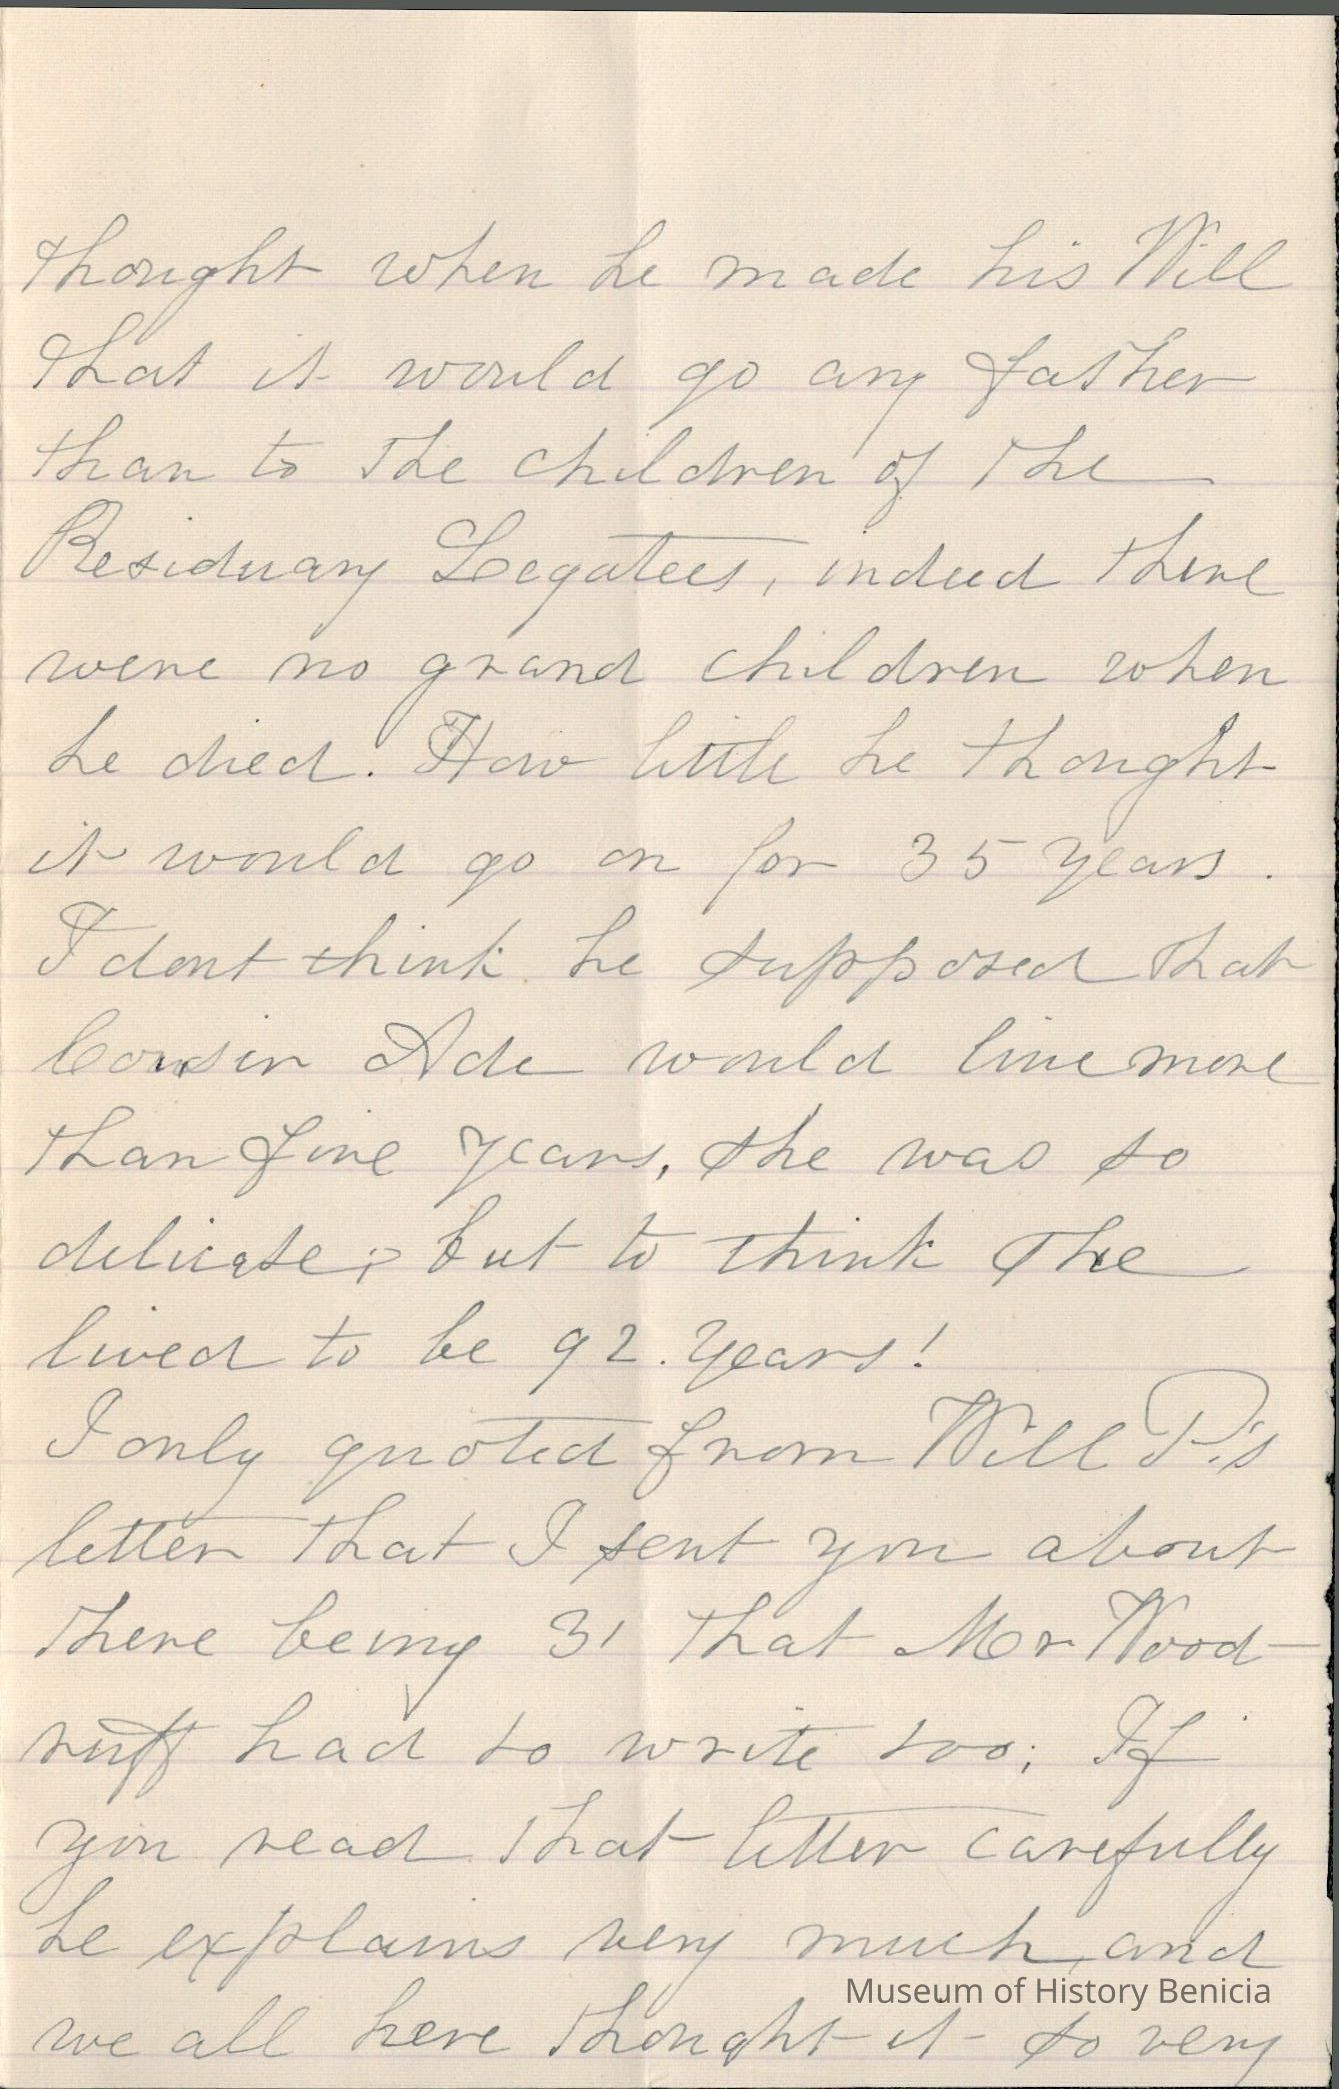 thought when he made his Will
that it would go any father
than to the children of the
Residuary Legatees, indeed there
were no grand children when
he died. How little he thought
it would go on for 35 years.
I dont think he supposed that
Cousin Ade would live more
than five years, she was so
delicate; but to think she
lived to be 92. years!
I only quoted from Will P.'s
letter that I sent you about
there being 31 that Mr Wood-
ruff had to write too; If
you read that letter carefully
he explains very much, and
Museum of History Benicia
we all here thought it so very